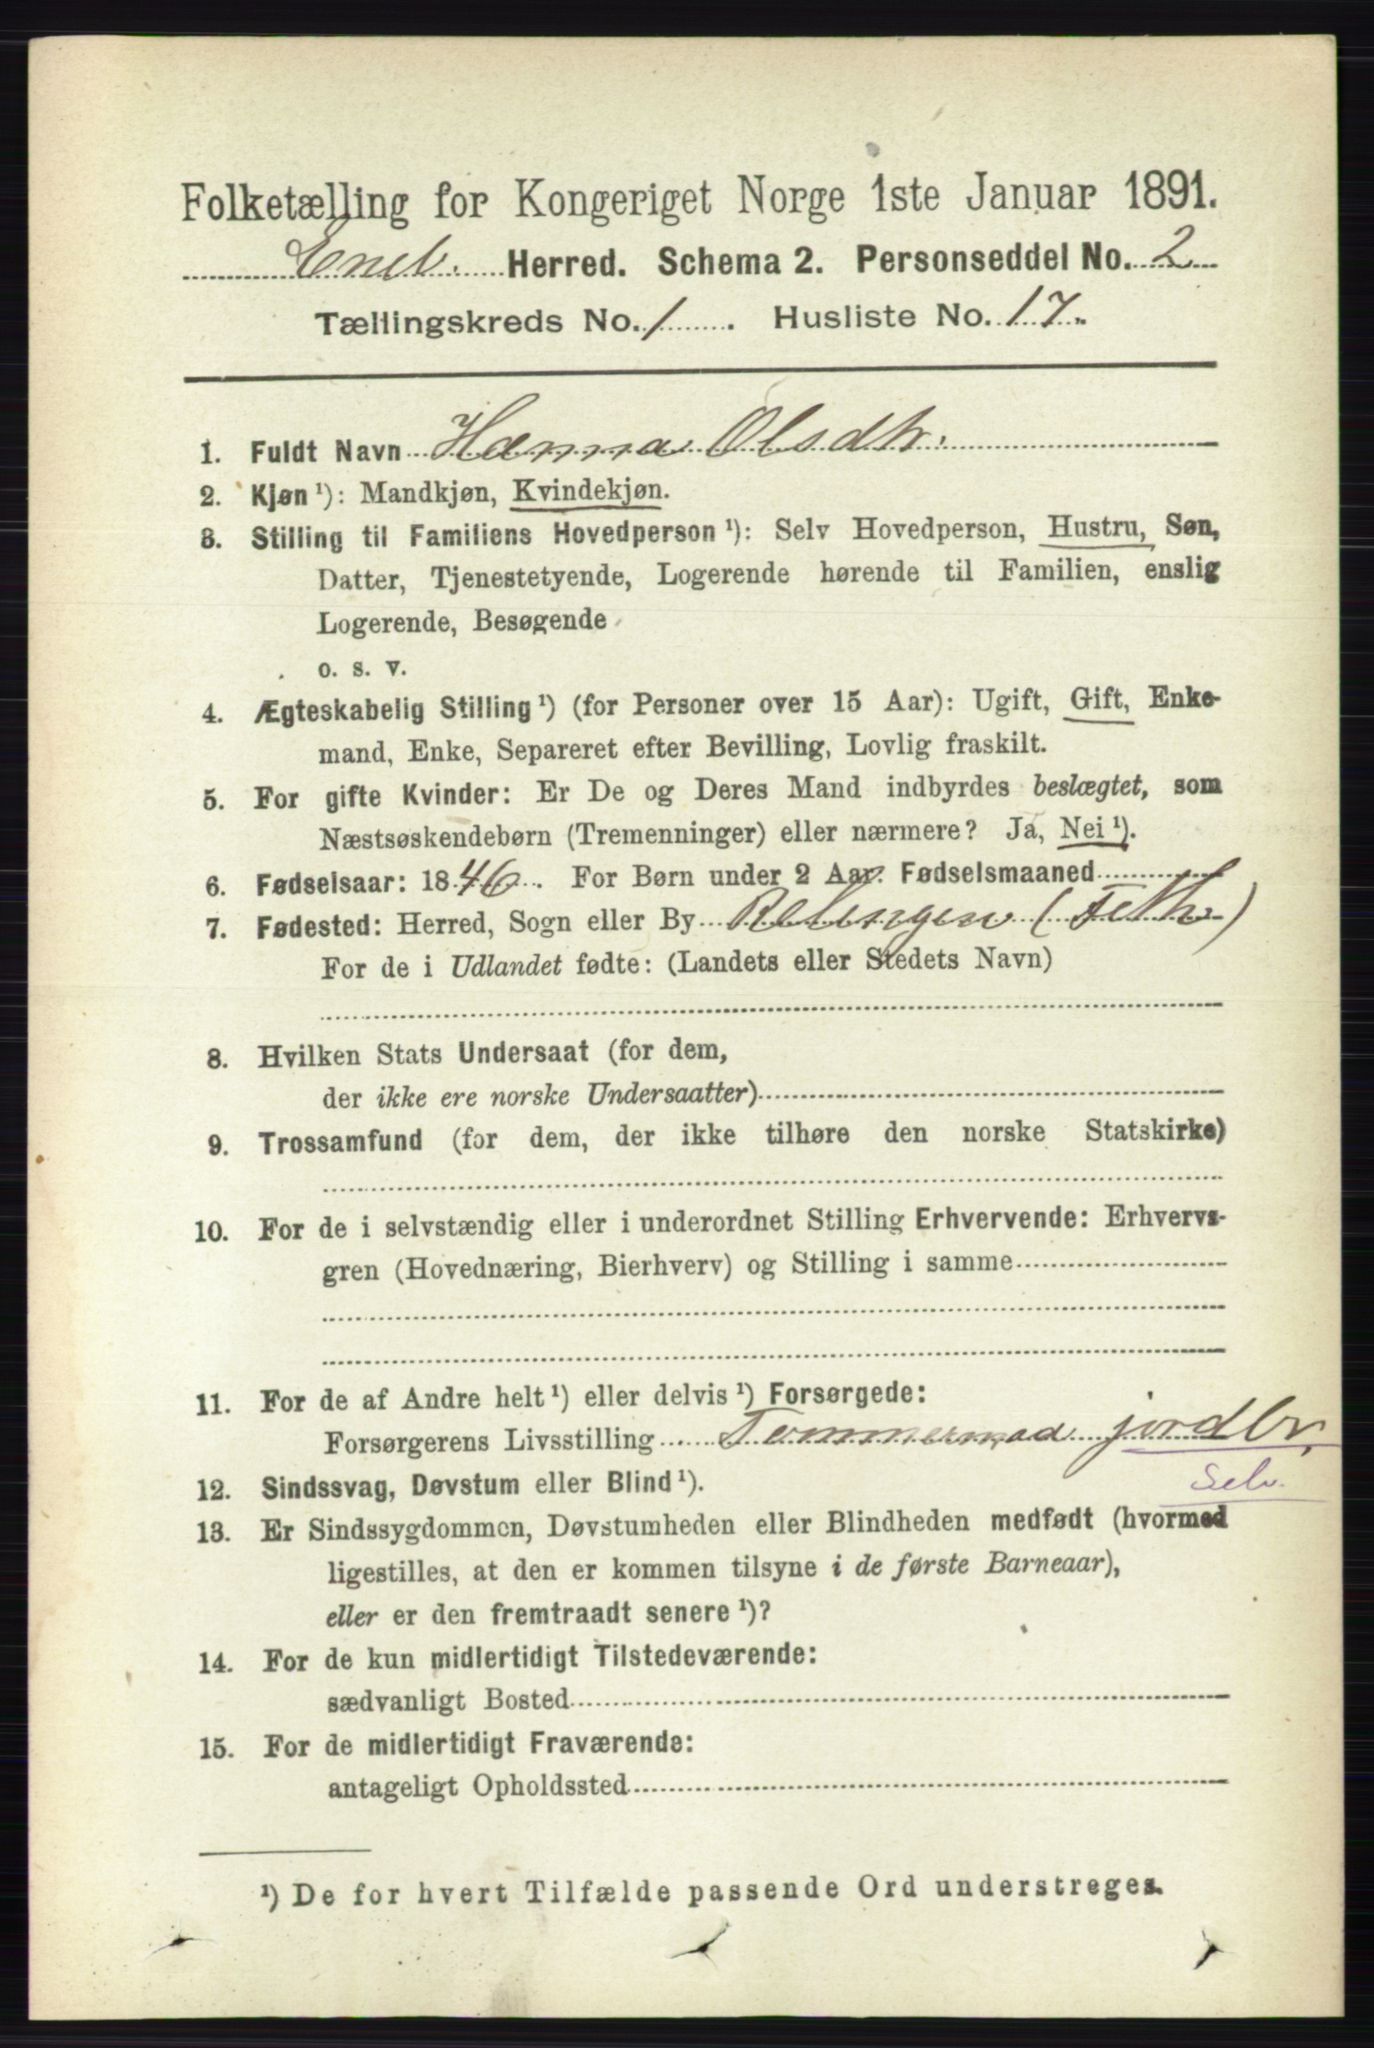 Folketælling for Kongeriget Norge 1ste Januar 1891.
Eneb. Herred. Schema 2. Personseddel No. 2
Tællingskreds No. 1 . Husliste No. 17.
1. Fuldt Navn Hanna Olsdtr.
2. Kjøn ¹): Mandkjøn, Kvindekjøn.
3. Stilling til Familiens Hovedperson ¹): Selv Hovedperson, Hustru, Søn,
Datter, Tjenestetyende, Logerende hørende til Familien, enslig
Logerende, Besøgende
o. s. v.
4. Ægteskabelig Stilling ¹) (for Personer over 15 Aar): Ugift, Gift, Enke-
mand, Enke, Separeret efter Bevilling, Lovlig fraskilt.
5. For gifte Kvinder: Er De og Deres Mand indbyrdes beslægtet, som
Næstsøskendebørn (Tremenninger) eller nærmere? Ja, Nei ¹).
6. Fødselsaar: 1846. For Børn under 2 Aar. Fødselsmaaned
7. Fødested: Herred, Sogn eller By Relingen (Feth)
For de i Udlandet fødte: (Landets eller Stedets Navn)
8. Hvilken Stats Undersaat (for dem,
der ikke ere norske Undersaatter)
9. Trossamfund (for dem, der ikke tilhøre den norske Statskirke)
10. For de i selvstændig eller i underordnet Stilling Erhvervende: Erhvervs-
gren (Hovednæring, Bierhverv) og Stilling i samme
11. For de af Andre helt ¹) eller delvis ¹) Forsørgede:
Forsørgerens Livsstilling Tømmermad jordbr.
Selv.
12. Sindssvag, Døvstum eller Blind ¹).
13. Er Sindssygdommen, Døvstumheden eller Blindheden medfødt (hvormed
ligestilles, at den er kommen tilsyne i de første Barneaar),
eller er den fremtraadt senere ¹)?
14. For de kun midlertidigt Tilstedeværende:
sædvanligt Bosted
15. For de midlertidigt Fraværende:
antageligt Opholdssted
¹) De for hvert Tilfælde passende Ord understreges.